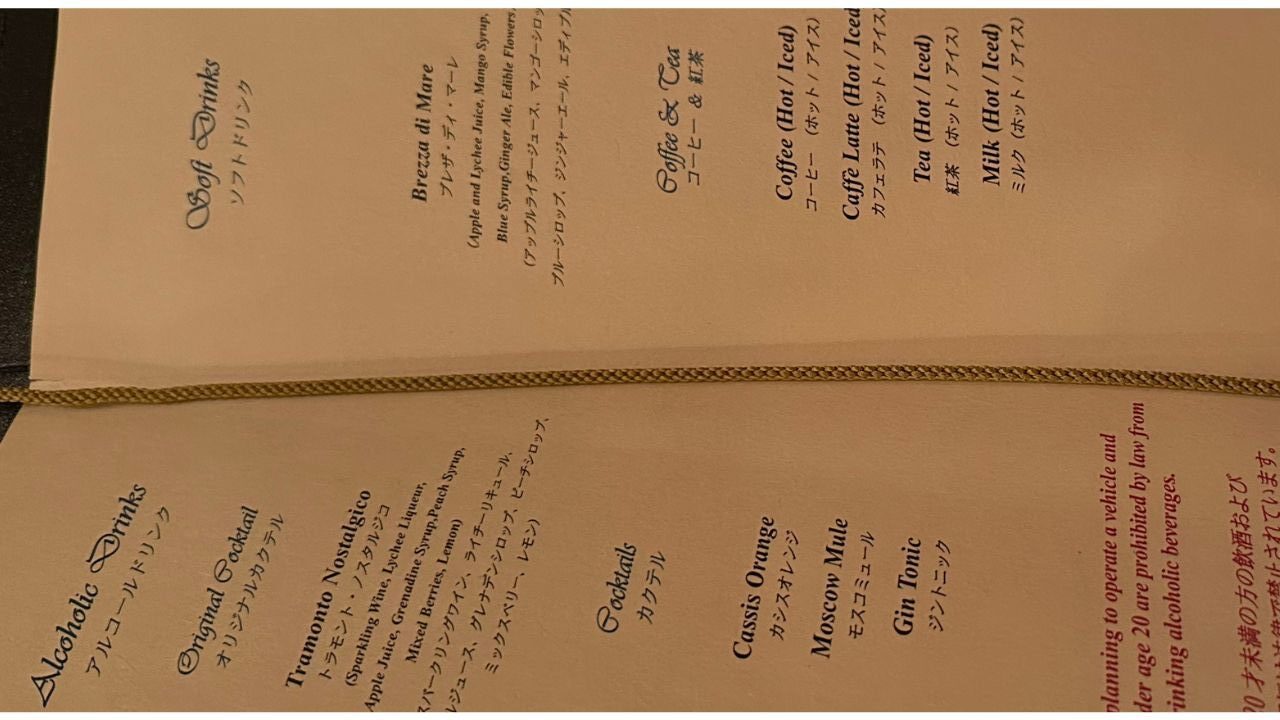 Alcoholic Drinks
アルコールドリンク
Original Cocktail
オリジナルカクテル
Tramonto Nostalgico
トラモント・ノスタルジコ
(Sparkling Wine, Lychee Liqueur,
Apple Juice, Grenadine Syrup,Peach Syrup,
Mixed Berries, Lemon)
スパークリングワイン、ライチーリキュール、
ルジュース、グレナデンシロップ、ピーチシロップ、
ミックスベリー、レモン)
Cocktails
カクテル
Cassis Orange
カシスオレンジ
Moscow Mule
モスコミュール
Gin Tonic
ジントニック
planning to operate a vehicle and
der age 20 are prohibited by law from
rinking alcoholic beverages.
20才未満の方の飲酒および
禁止されています。
Soft Drinks
ソフトドリンク
Brezza di Mare
ブレザ・ディ・マーレ
(Apple and Lychee Juice, Mango Syrup,
Blue Syrup,Ginger Ale, Edible Flowers
(アップルライチージュース、マンゴーシロッ
ブルーシロップ、ジンジャーエール、エディブル
Coffee & Tea
コーヒー & 紅茶
Coffee (Hot / Iced)
コーヒー (ホット / アイス)
Caffè Latte (Hot / Iced
カフェラテ (ホット / アイス
Tea (Hot / Iced)
紅茶 (ホット / アイス)
Milk (Hot / Iced)
ミルク (ホット / アイス)